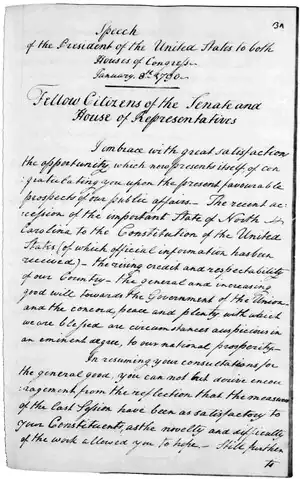 3A
Speech
of the President of the United States to both
Houses of Congress
January 8th 1790.
Fellow Citizens of the Senate and
House of Representatives
I embrace with great satisfaction
the opportunity, which now presents itself of con
gratulating you upon the present favourable
prospects of our public affairs — The recent ac
cession of the important State of North
Carolina to the Constitution of the United
States (of which official information has been
received) — the rising credit and respectability
of our Country — the general and increasing
good will towards the Government of the Union
and the concord, peace and plenty, with which
we are blessed are circumstances auspicious in
an eminent degree, to our national prosperity —
In resuming your consultations for
the general good, you can not but derive encou
ragement from the reflection that the measures
of the last Session have been as satisfactory to
your Constituents, as the novelty and difficulty
of the work allowed you to hope — Still, further
to